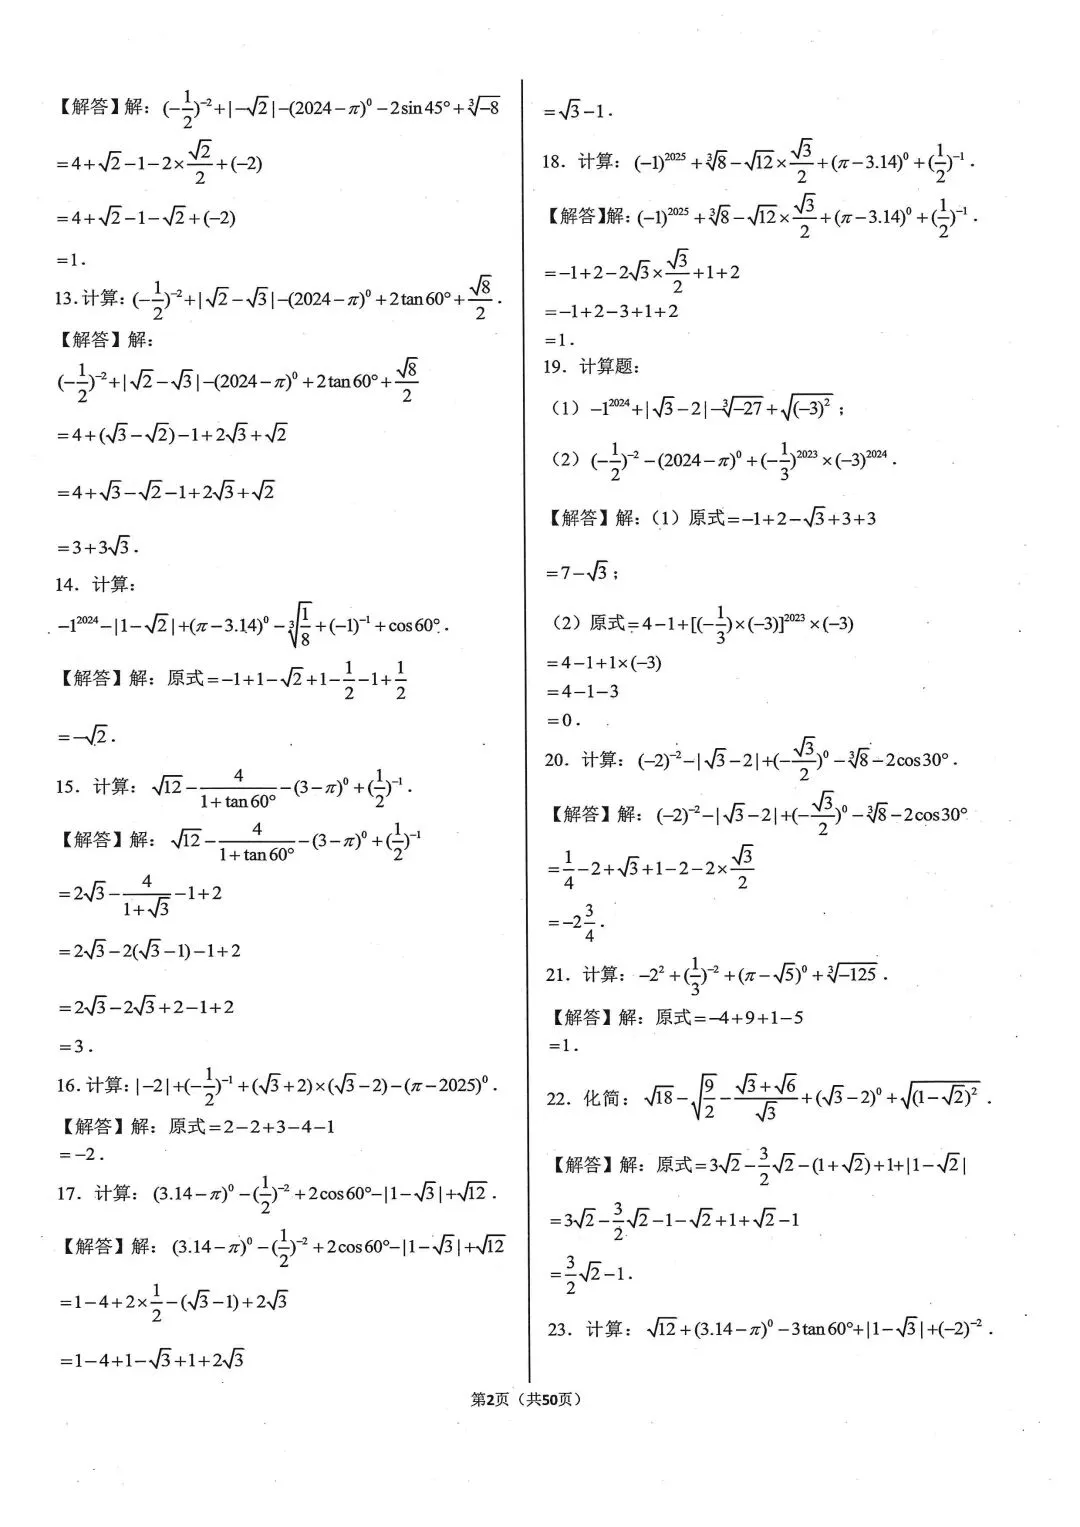 【解答】解：(-1/2)⁻²+|-√2|-(2024-π)⁰-2sin45°+∛-8
=4+√2-1-2×√2/2+(-2)
=4+√2-1-√2+(-2)
=1.
13.计算：(-1/2)⁻²+|√2-√3|-(2024-π)⁰+2tan60°+√8/2.
【解答】解：
(-1/2)⁻²+|√2-√3|-(2024-π)⁰+2tan60°+√8/2
=4+(√3-√2)-1+2√3+√2
=4+√3-√2-1+2√3+√2
=3+3√3.
14. 计算：
-1²⁰²⁴-|1-√2|+(π-3.14)⁰-∛(1/8)+(-1)⁻¹+cos60°.
【解答】解：原式=-1+1-√2+1-1/2-1+1/2
=-√2.
15. 计算：√12-4/(1+tan60°)-(3-π)⁰+(1/2)⁻¹.
【解答】解：√12-4/(1+tan60°)-(3-π)⁰+(1/2)⁻¹
=2√3-4/(1+√3)-1+2
=2√3-2(√3-1)-1+2
=2√3-2√3+2-1+2
=3.
16.计算：|-2|+(-1/2)⁻¹+(√3+2)×(√3-2)-(π-2025)⁰.
【解答】解：原式=2-2+3-4-1
=-2.
17. 计算：(3.14-π)⁰-(1/2)⁻²+2cos60°-|1-√3|+√12.
【解答】解：(3.14-π)⁰-(1/2)⁻²+2cos60°-|1-√3|+√12
=1-4+2×1/2-(√3-1)+2√3
=1-4+1-√3+1+2√3
=√3-1.
18. 计算：(-1)²⁰²⁵+∛8-√12×√3/2+(π-3.14)⁰+(1/2)⁻¹.
【解答】解：(-1)²⁰²⁵+∛8-√12×√3/2+(π-3.14)⁰+(1/2)⁻¹.
=-1+2-2√3×√3/2+1+2
=-1+2-3+1+2
=1.
19. 计算题：
（1）-1²⁰²⁴+|√3-2|-∛-27+√(-3)²；
（2）(-1/2)⁻²-(2024-π)⁰+(-1/3)²⁰²³×(-3)²⁰²⁴.
【解答】解：（1）原式=-1+2-√3+3+3
=7-√3；
（2）原式=4-1+[(-1/3)×(-3)]²⁰²³×(-3)
=4-1+1×(-3)
=4-1-3
=0.
20. 计算：(-2)⁻²-|√3-2|+(-√3/2)⁰-∛8-2cos30°.
【解答】解：(-2)⁻²-|√3-2|+(-√3/2)⁰-∛8-2cos30°
=1/4-2+√3+1-2-2×√3/2
=-2 3/4.
21. 计算：-2²+(1/3)⁻²+(π-√5)⁰+∛-125.
【解答】解：原式=-4+9+1-5
=1.
22. 化简：√18-√(9/2)-(√3+√6)/√3+(√3-2)⁰+√(1-√2)².
【解答】解：原式=3√2-3/2√2-(1+√2)+1+|1-√2|
=3√2-3/2√2-1-√2+1+√2-1
=3/2√2-1.
23. 计算：√12+(3.14-π)⁰-3tan60°+|1-√3|+(-2)⁻².
第2页（共50页）